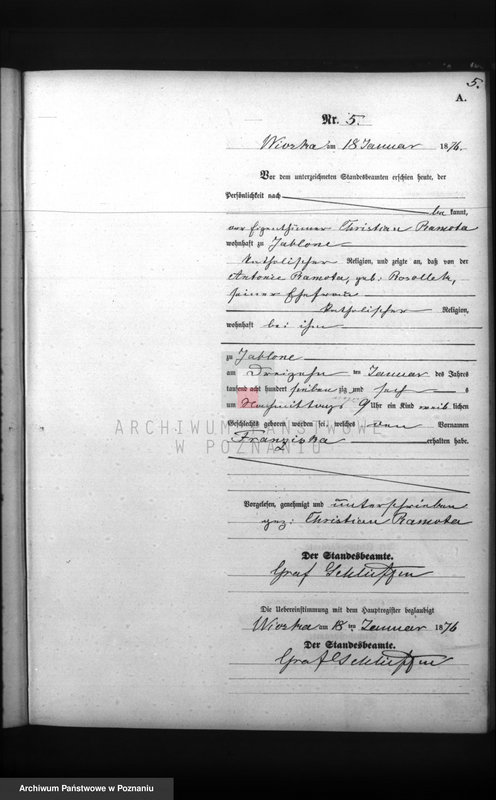 5.
A.
Nr. 5.
Wioska am 18 Januar 1876.
Vor dem unterzeichneten Standesbeamten erschien heute, der
Persönlichkeit nach
be kannt,
der Eigenthümer Christian Ramota
wohnhaft zu Jablone
katholischer Religion, und zeigte an, daß von der
Antonie Ramota, geb:
seiner Ehefrau
katholischer Religion,
wohnhaft bei ihm
zu Jablone
am Dreizehn ten Januar des Jahres
tausend acht hundert sieben zig und sech s
um Nachmittags 9 Uhr ein Kind weib lichen
Geschlechts geboren worden sei, welches den Vornamen
Franziska erhalten habe.
ARCHIWUM PAŃSTWOWE
W POZNANIU
Vorgelesen, genehmigt und unterschrieben
gez: Christian Ramota
Der Standesbeamte.
Graf Schlieffen
Die Uebereinstimmung mit dem Hauptregister beglaubigt
Wioska am 18 ten Januar 1876
Der Standesbeamte.
Graf Schlieffen
Archiwum Państwowe w Poznaniu